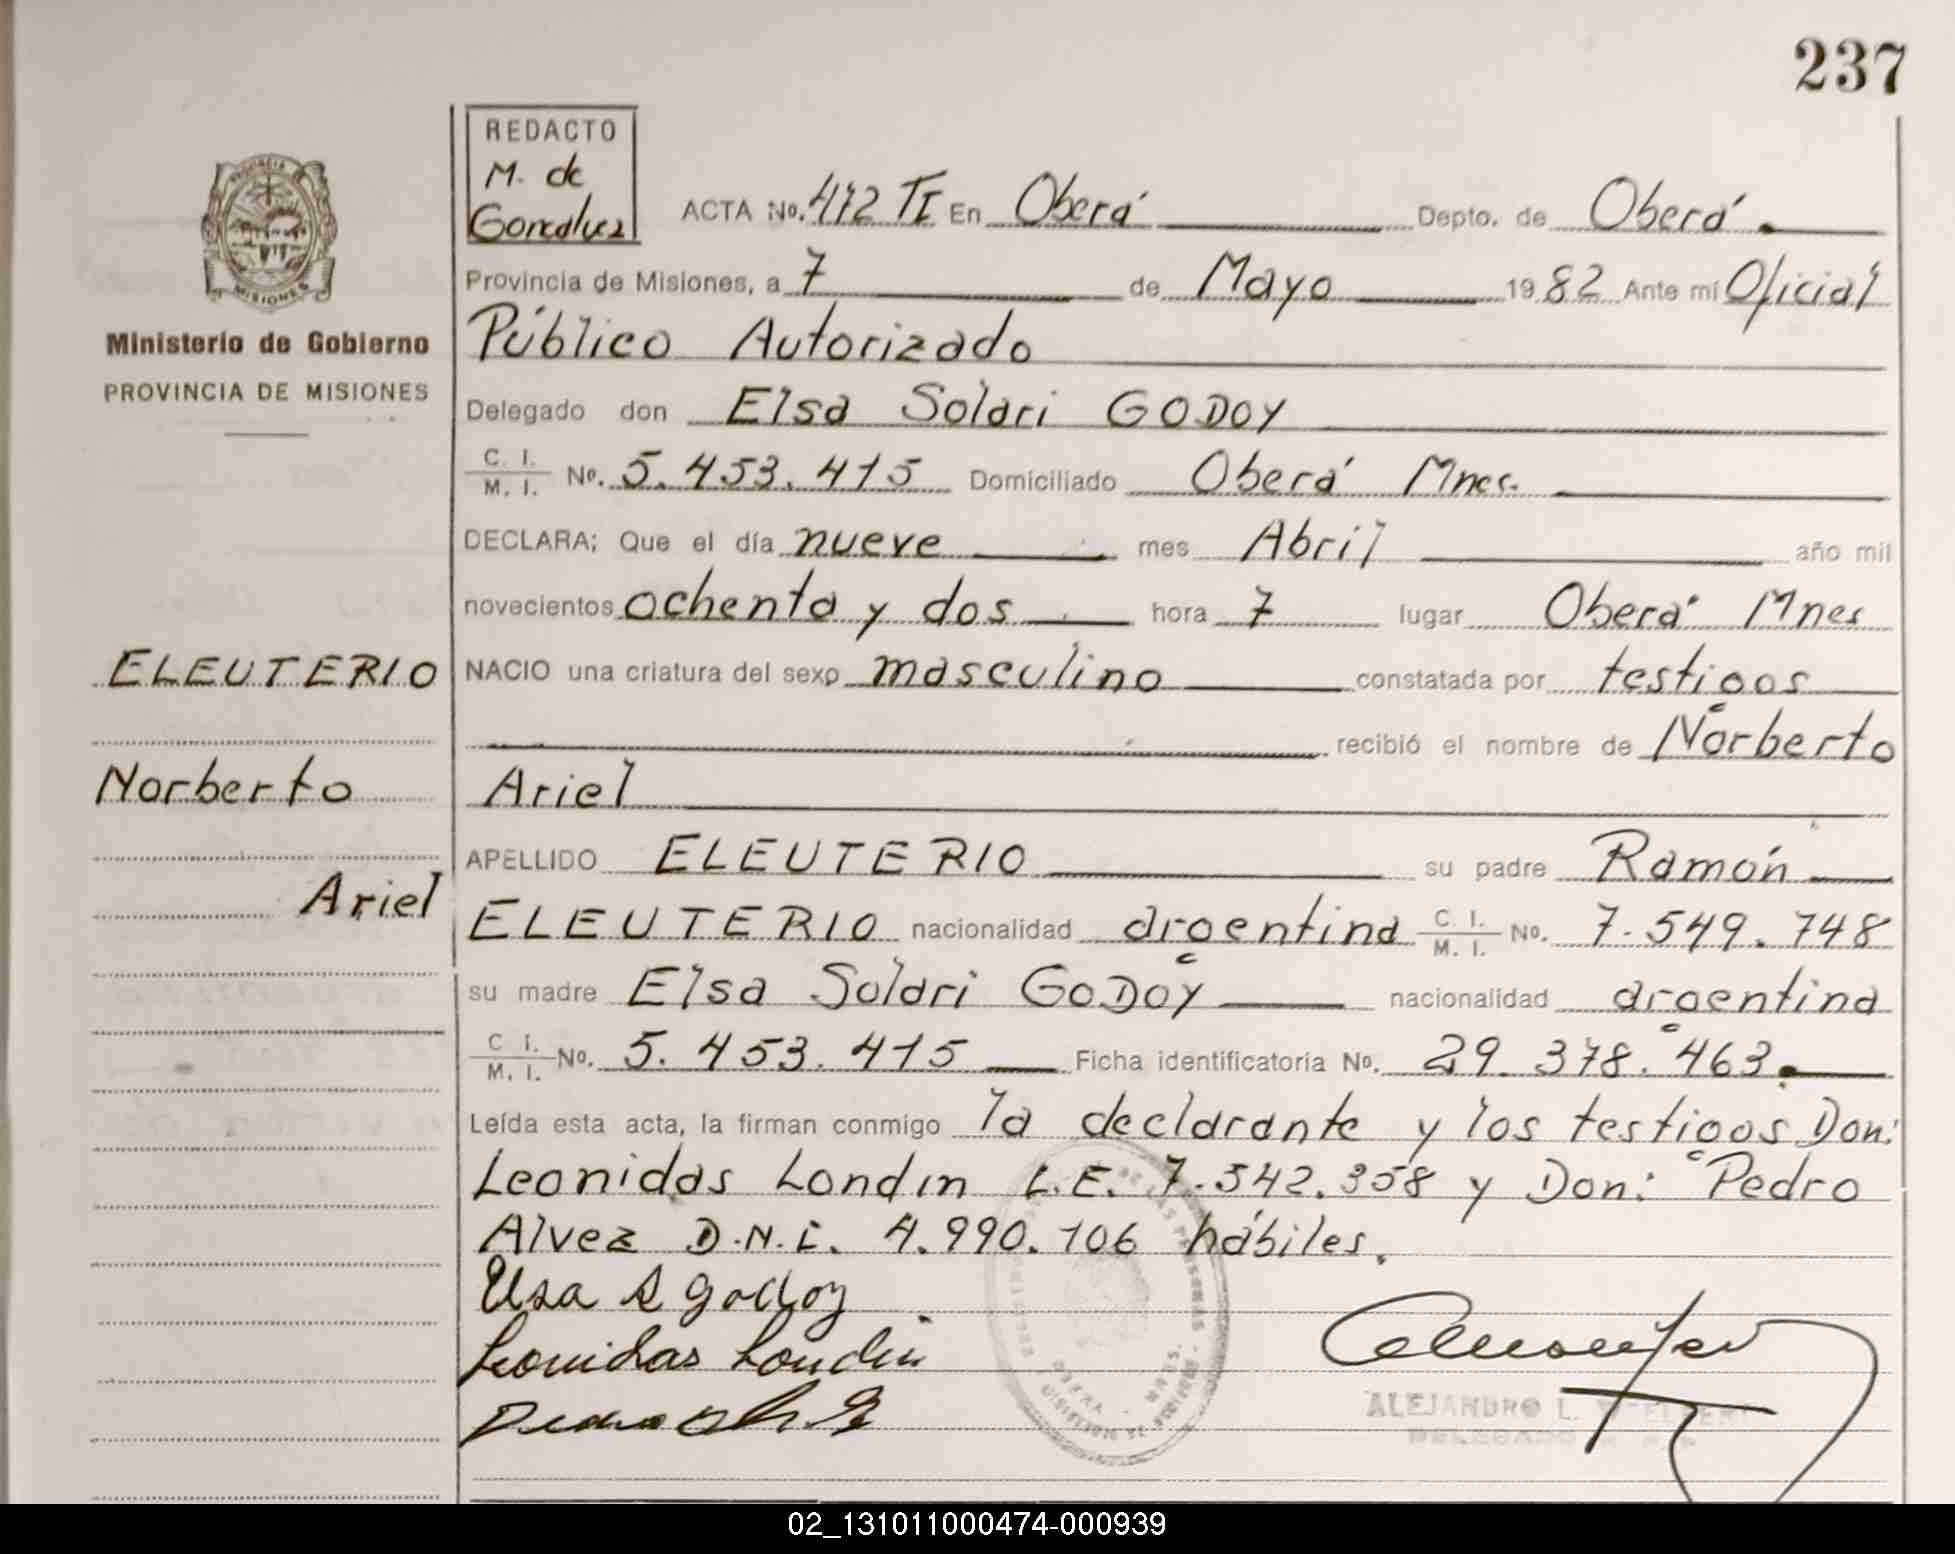 237
REDACTO
M. de
Gonzalvez
ACTA No. 412 TI En Oberá Depto. de Oberá.
PROVINCIA
MISIONES
Provincia de Misiones, a 7 de Mayo 1982 Ante mí Oficial
Ministerio de Gobierno
PROVINCIA DE MISIONES
Público Autorizado
Delegado don Elsa Solari GODOY
C. I.
M. I. No. 5.453.415 Domiciliado Oberá Mnes.
DECLARA; Que el día nueve mes Abril año mil
novecientos ochenta y dos hora 7 lugar Oberá Mnes
ELEUTERIO
NACIO una criatura del sexo masculino constatada por testigos
recibió el nombre de Norberto
Norberto
Ariel
APELLIDO ELEUTERIO su padre Ramón
Ariel
ELEUTERIO nacionalidad argentina C. I. M. I. No. 7.549.748
su madre Elsa Solari GODOY nacionalidad argentina
C I. M. I. No. 5.453.415 Ficha identificatoria No. 29.378.463.
Leída esta acta, la firman conmigo la declarante y los testigos Don:
Leonidas Londin L.E. 7.542.358 y Don: Pedro
Alvez D.N.I. 4.990.106 hábiles.
Elsa S Godoy
Leonidas Londin
ALEJANDRO L.
DELEGADO
02_131011000474-000939